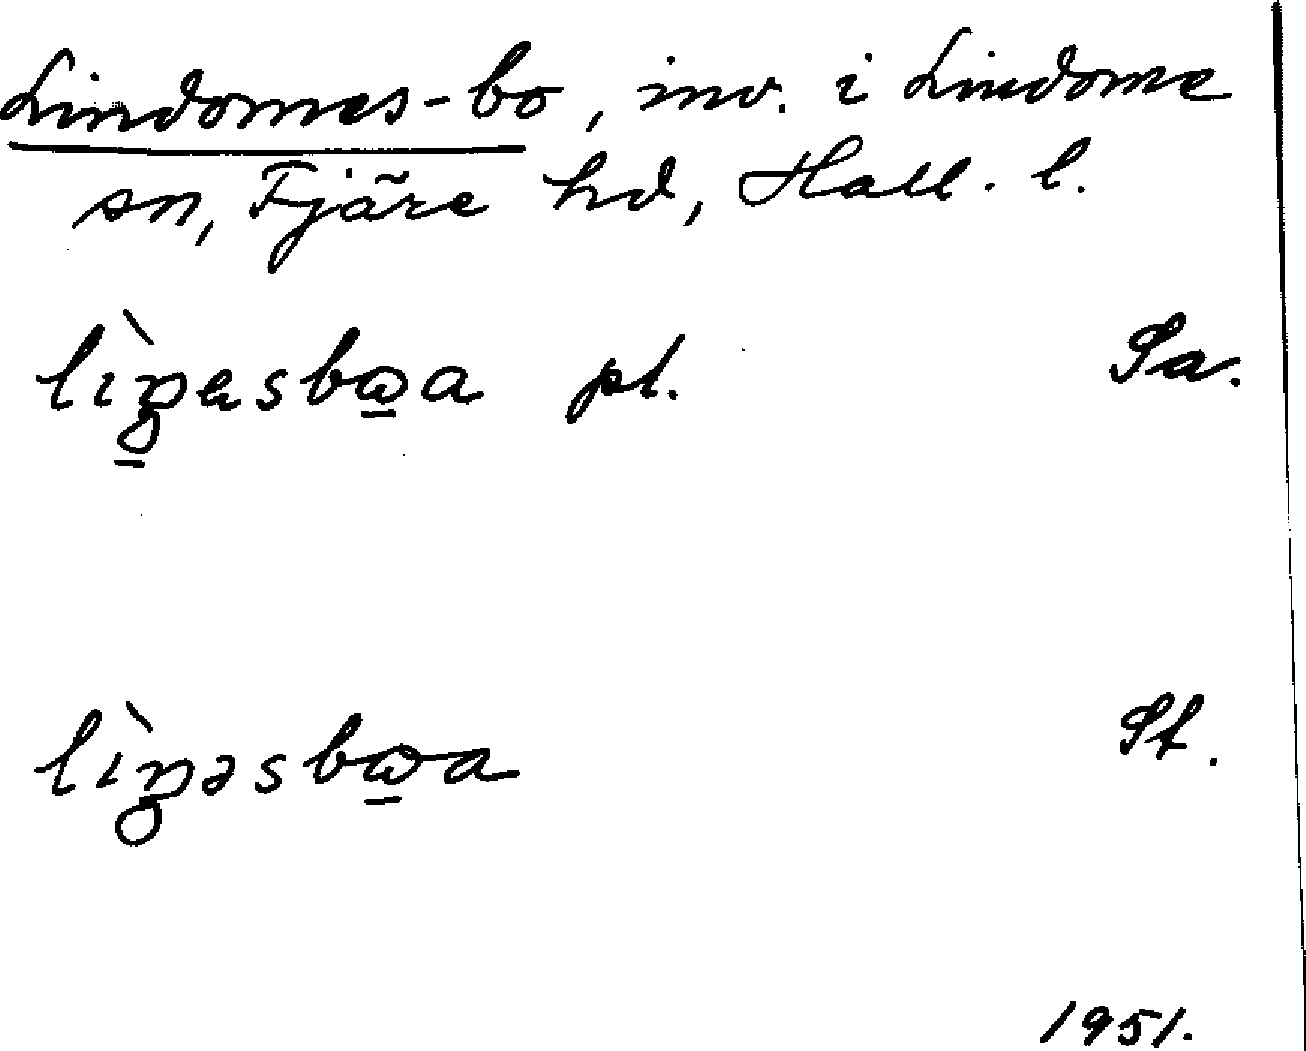 Lindomes-bo, inv. i Lindome
sn, Fjäre hd, Hall. l.
lìŋesbωa pl. Sa.
lìŋəsbωa St.
1951.